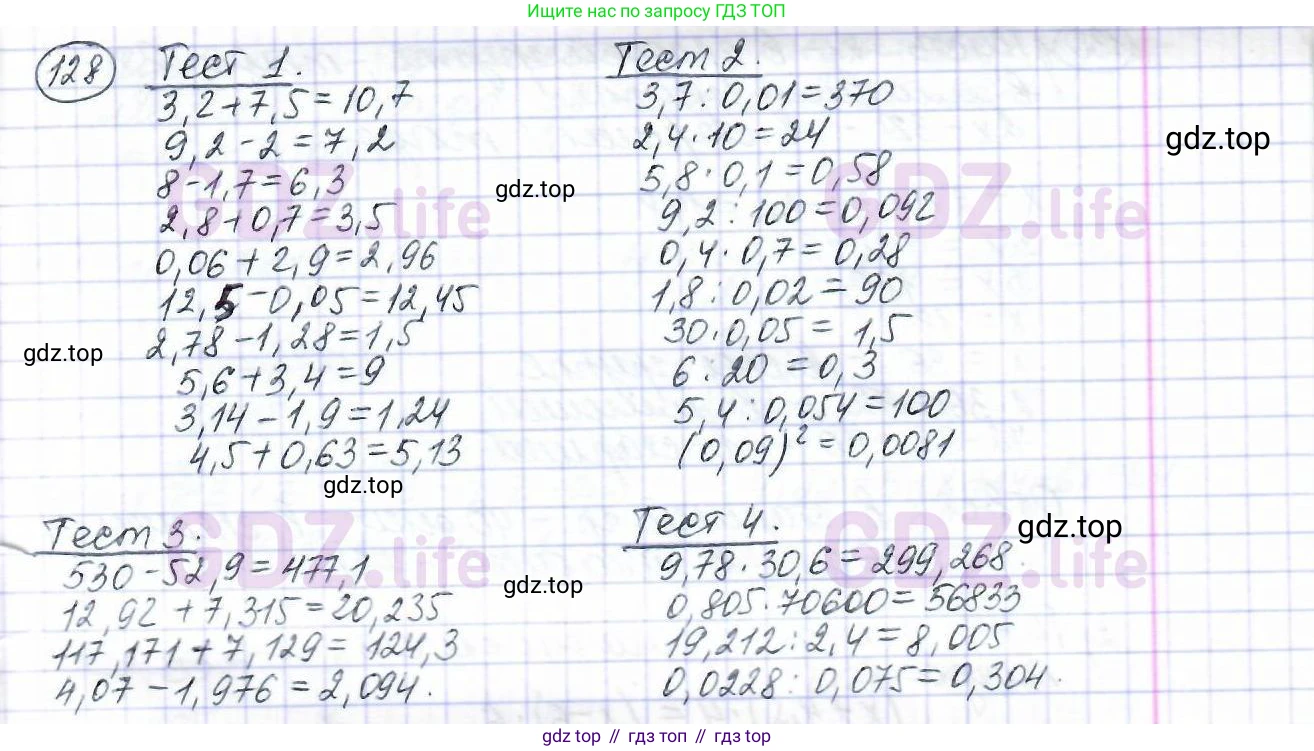 Ищите нас по запросу ГДЗ ТОП
128
Тест 1.
3,2+7,5=10,7
9,2-2=7,2
8-1,7=6,3
2,8+0,7=3,5
0,06+2,9=2,96
12,5-0,05=12,45
2,78-1,28=1,5
5,6+3,4=9
3,14-1,9=1,24
4,5+0,63=5,13
Тест 2.
3,7:0,01=370
2,4·10=24
5,8·0,1=0,58
9,2:100=0,092
0,4·0,7=0,28
1,8:0,02=90
30·0,05=1,5
6:20=0,3
5,4:0,054=100
(0,09)²=0,0081
Тест 3.
530-52,9=477,1
12,92+7,315=20,235
117,171+7,129=124,3
4,07-1,976=2,094.
Тест 4.
9,78·30,6=299,268.
0,805·70600=56833
19,212:2,4=8,005
0,0228:0,075=0,304.
gdz.top
gdz.top
gdz.top
gdz.top
gdz.top
gdz.top
GDZ.life
GDZ.life
GDZ.life
GDZ.life
gdz.top // гдз.top // гдз.top